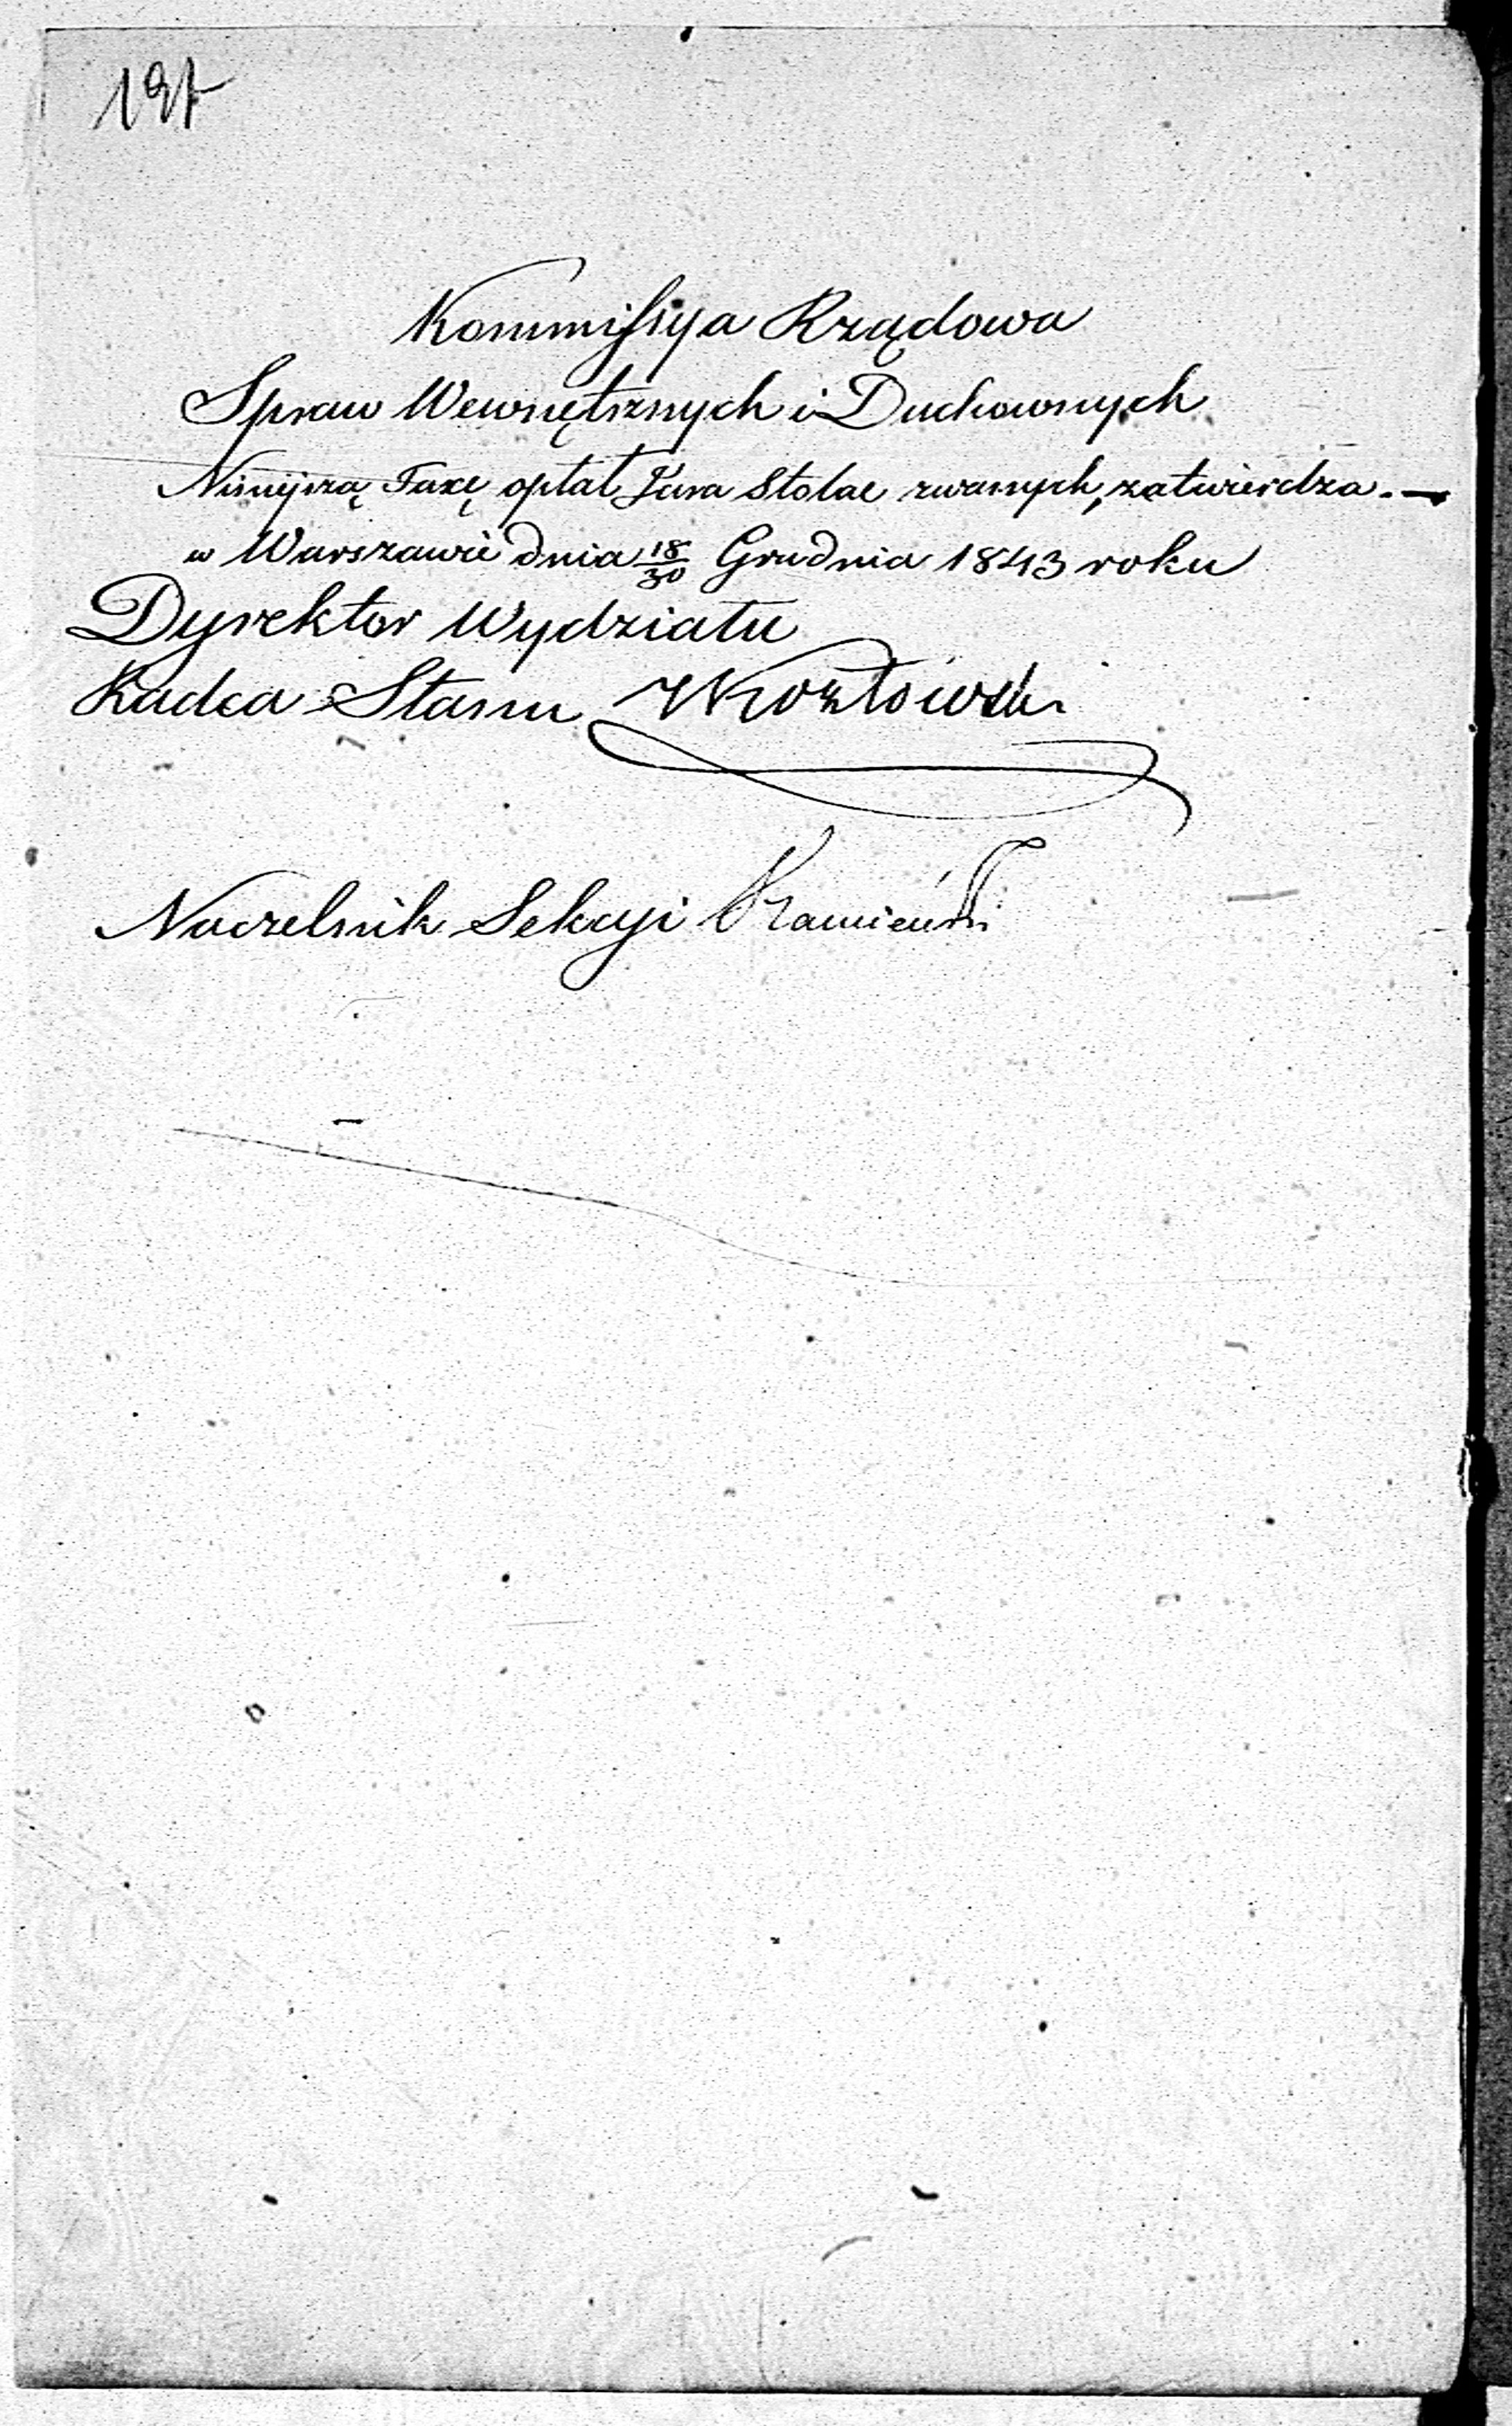 197
Kommissya Rządowa
Spraw Wewnętrznych i Duchownych
Niniejszą Taxę opłat Jura Stolae zwanych, zatwierdza. —
w Warszawie dnia 18/30 Grudnia 1843 roku
Dyrektor Wydziału
Radca Stanu Kozłowski
Naczelnik Sekcyi Kamieński